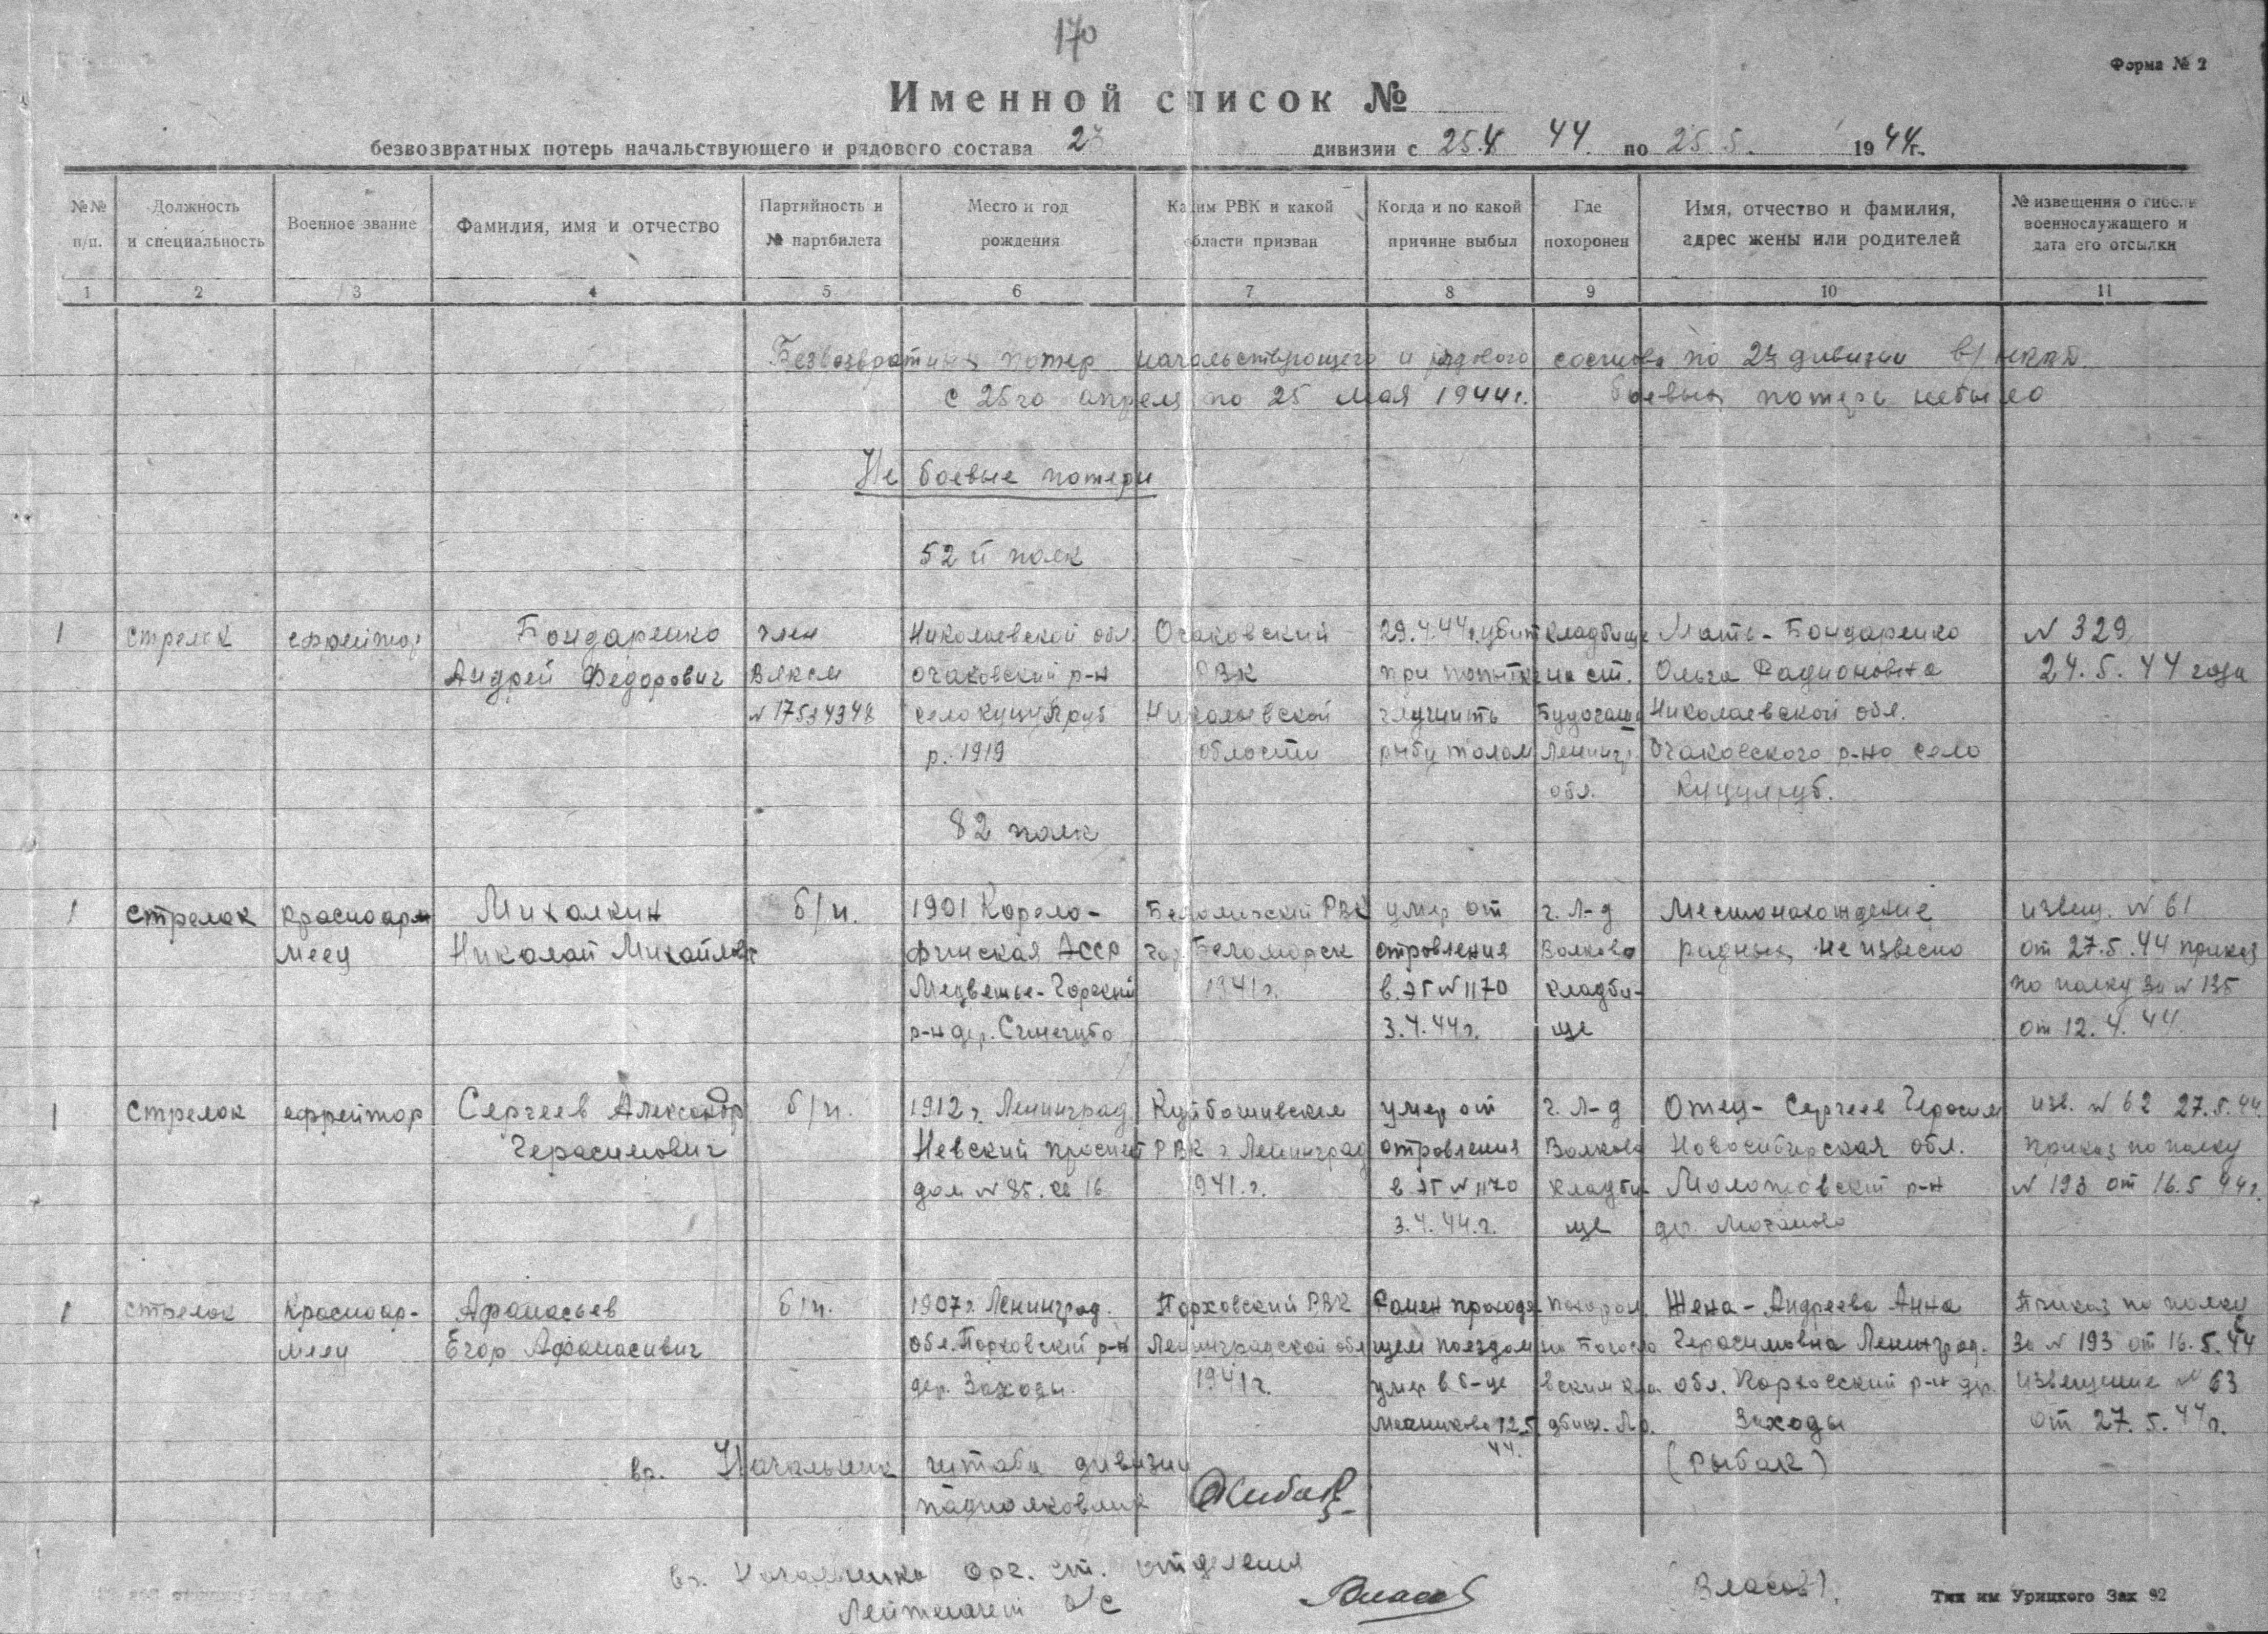 170
Форма № 2
Именной список №
безвозвратных потерь начальствующего и рядового состава 23 дивизии с 25.4 44. по 25.5. 1944г.
№№ п/п.
Должность и специальность
Военное звание
Фамилия, имя и отчество
Партийность и № партбилета
Место и год рождения
Каким РВК и какой области призван
Когда и по какой причине выбыл
Где похоронен
Имя, отчество и фамилия, адрес жены или родителей
№ извещения о гибели военнослужащего и дата его отсылки
1 2 3 4 5 6 7 8 9 10 11
Безвозвратных потер начальствующего и рядового состава по 23 дивизии в/ НКВД
с 25го апреля по 25 мая 1944г. боевых потерь небыло
Не боевые потери
52 й полк
1 стрелок ефрейтор Бондаренко член Николаевской обл. Очаковский 29.4.44г. убит кладбище Мать - Бондаренко N 329
Андрей Федорович Влксм очаковский р-н РВК при попытке на ст. Ольга Радионовна 24.5.44 года
N 17534348 село Куцуруб Николаевской глушить Будогащь Николаевской обл.
р. 1919 области рыбу толом Ленингр. Очаковского р-на село
обл. Куцуруб.
82 полк
1 стрелок красноарм Михалкин б/п. 1901 Карело- РВК умер от г. Л-д Местонахождение извещ. N 61
меец Николай Михайлович финская АССР гор. Беломорск отровления Волково родных не извесно от 27.5.44 приказ
Медвежье-Горский 1941г. в ЭГ N 1170 кладби- по полку за N 135
р-н дер. 3.4.44г. ще от 12.4.44.
1 стрелок ефрейтор Сергеев Александр б/п. 1912г. Ленинград Куйбошивским умер от г. Л-д Отец - Сергеев Герасим изв. N 62 27.5.44
Герасимович Невский проспект РВК г Ленинград отровления Волково Новосибирская обл. приказ по полку
дом N 85. кв 16 1941.г. в ЭГ N 1170 кладби- р-н N 193 от 16.5 44г.
3.4.44.г. ще дер.
1 стрелок Красноар- Афанасьев б/п. 1907г. Ленинград. Порховский РВК Ранен проходя- похорон Жена - Андреева Анна Приказ по полку
меец Егор Афанасивич обл. Порховский р-н Ленинградской обл щем поездом на Богосло Герасимовна Ленинград. За N 193 от 16.5.44
дер. Заходы. 1941г. умер в б-це вском кла- обл. Порховский р-н дер. извещение N 63
Мечникова 12.5 дбищ. Л-д. Заходы от 27.5.44г.
44.
вр. Начальник штаба дивизии
падполковник (Рыбак)
вр. Начальника орг. ст. отделения
Лейтенант а/с Власов (Власов).
Тип им Урицкого Зак 92